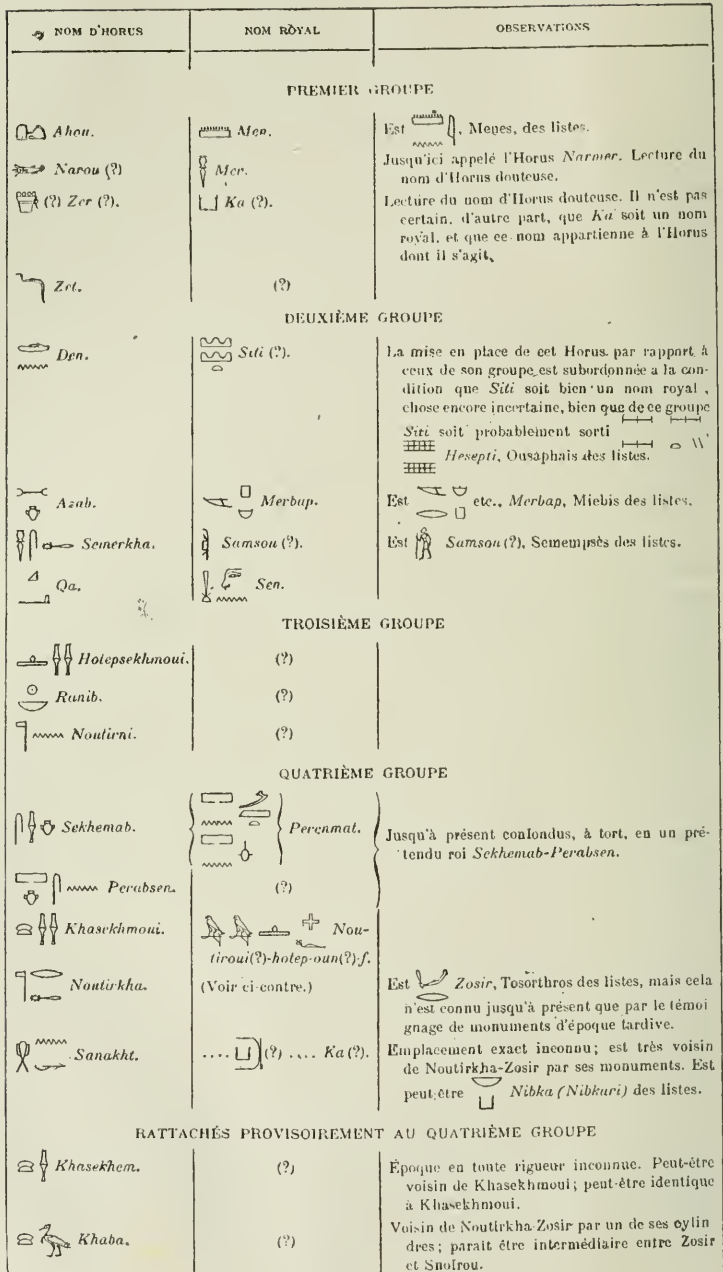 NOM D'HORUS NOM ROYAL OBSERVATIONS
PREMIER GROUPE
Ahou. Men. Est , Menes, des listes.
Narou (?) Mer. Jusqu'ici appelé l'Horus Narmer. Lecture du
nom d'Horus douteuse.
(?) Zer (?). Ka (?). Lecture du nom d'Horus douteuse. Il n'est pas
certain, d'autre part, que Ka soit un nom
royal, et que ce nom appartienne à l'Horus
dont il s'agit.
Zet. (?)
DEUXIÈME GROUPE
Den. Siti (?). La mise en place de cet Horus par rapport à
ceux de son groupe est subordonnée a la con-
dition que Siti soit bien un nom royal,
chose encore incertaine, bien que de ce groupe
Siti soit probablement sorti
Hesepti, Ousaphais des listes.
Azab. Merbap. Est etc., Merbap, Miebis des listes.
Semerkha. Samsou (?). Est Samsou (?), Semempsès des listes.
Qa. Sen.
TROISIÈME GROUPE
Hotepsekhmoui. (?)
Ranib. (?)
Noutirni. (?)
QUATRIÈME GROUPE
Sekhemab. Perenmat. Jusqu'à présent confondus, à tort, en un pré-
tendu roi Sekhemab-Perabsen.
Perabsen. (?)
Khasekhmoui. Nou-
tiroui(?)-hotep-oun(?)-f.
Noutirkha. (Voir ci-contre.) Est Zosir, Tosorthros des listes, mais cela
n'est connu jusqu'à présent que par le témoi
gnage de monuments d'époque tardive.
Sanakht. .... (?) .... Ka (?). Emplacement exact inconnu; est très voisin
de Noutirkha-Zosir par ses monuments. Est
peut-être Nibka (Nibkari) des listes.
RATTACHÉS PROVISOIREMENT AU QUATRIÈME GROUPE
Khasekhem. (?) Époque en toute rigueur inconnue. Peut-être
voisin de Khasekhmoui; peut-être identique
à Khasekhmoui.
Khaba. (?) Voisin de Noutirkha-Zosir par un de ses cylin
dres; parait être intermédiaire entre Zosir
et Snofrou.